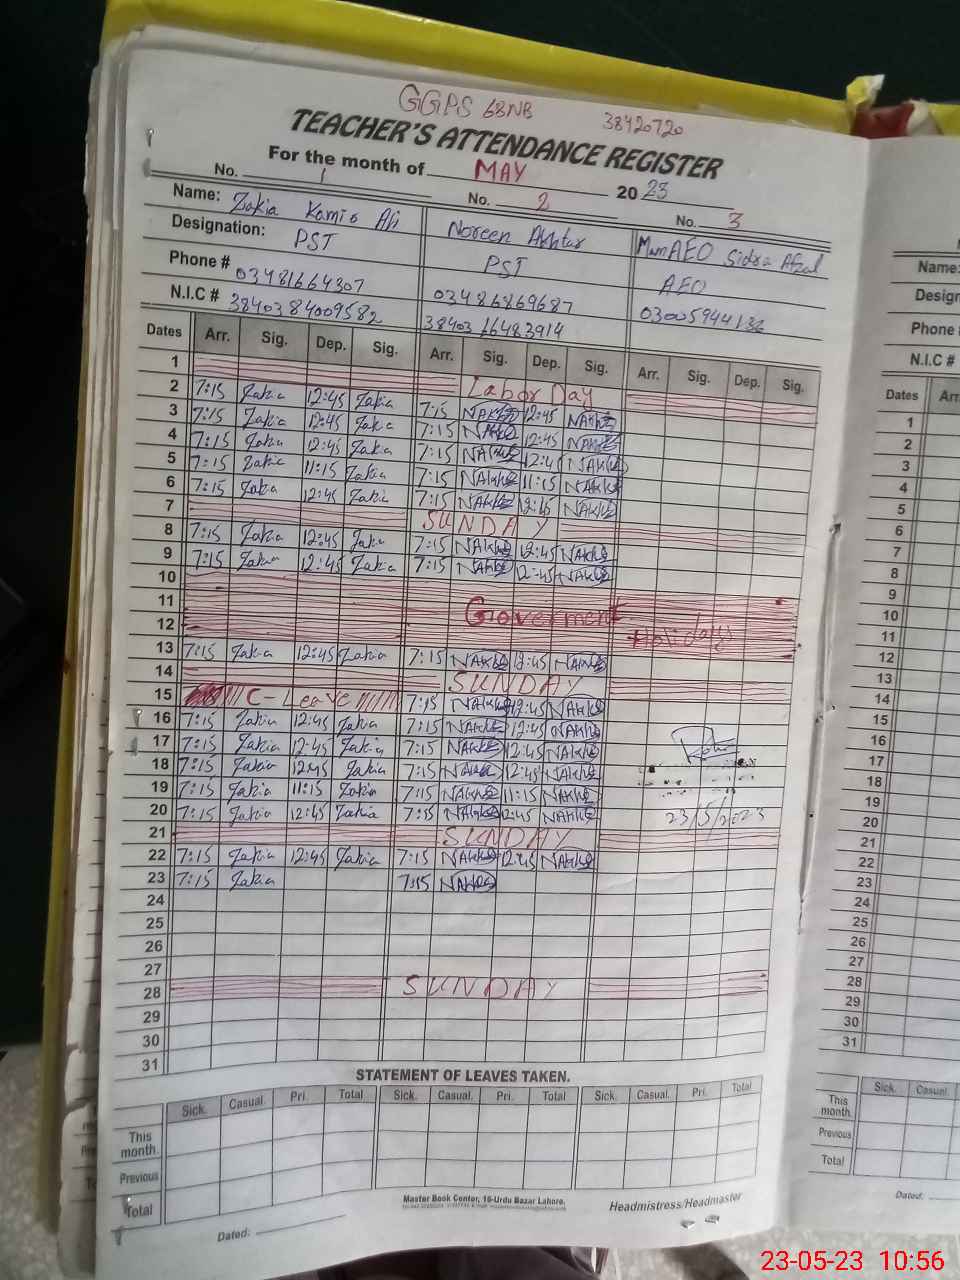 GGPS 68NB 38420720
TEACHER'S ATTENDANCE REGISTER
For the month of MAY 2023
No. 1 No. 2 No. 3
Name: Zakia Noreen Akhtar Mam AEO Sidra Afzal
Designation: PST PST AEO
Phone # 03481664307 03486869687 03005944136
N.I.C # 3840384009582 38403 16483914
Dates Arr. Sig. Dep. Sig. Arr. Sig. Dep. Sig. Arr. Sig. Dep. Sig.
1 Labor Day
2 7:15 Zakia 12:45 Zakia 7:15 12:45
3 7:15 Zakia 12:45 Zakia 7:15 12:45
4 7:15 Zakia 12:45 Zakia 7:15 12:4
5 7:15 Zakia 11:15 Zakia 7:15 11:15
6 7:15 Zakia 12:45 Zakia 7:15 12:45
7 SUNDAY
8 7:15 Zakia 12:45 Zakia 7:15 12:45
9 7:15 Zakia 12:45 Zakia 7:15 12:45
10
11 Goverment
12 Holidays
13 7:15 Zakia 12:45 Zakia 7:15 12:45
14 SUNDAY
15 C-Leave 7:15 12:45
16 7:15 Zakia 12:45 Zakia 7:15 12:45
17 7:15 Zakia 12:45 Zakia 7:15 12:45
18 7:15 Zakia 12:45 Zakia 7:15 12:45
19 7:15 Zakia 11:15 Zakia 7:15 11:15
20 7:15 Zakia 12:45 Zakia 7:15 12:45 23/5/2023
21 SUNDAY
22 7:15 Zakia 12:45 Zakia 7:15 12:45
23 7:15 Zakia 7:15
24
25
26
27
28 SUNDAY
29
30
31
STATEMENT OF LEAVES TAKEN.
Sick. Casual. Pri. Total Sick. Casual. Pri. Total Sick. Casual. Pri. Total
This month.
Previous
Total
Master Book Center, 16-Urdu Bazar Lahore.
Dated: Headmistress/Headmaster
Name:
Phone #
N.I.C #
Dates
1
2
3
4
5
6
7
8
9
10
11
12
13
14
15
16
17
18
19
20
21
22
23
24
25
26
27
28
29
30
31
Sick. Casual.
This month.
Previous
Total
Dated:
23-05-23 10:56